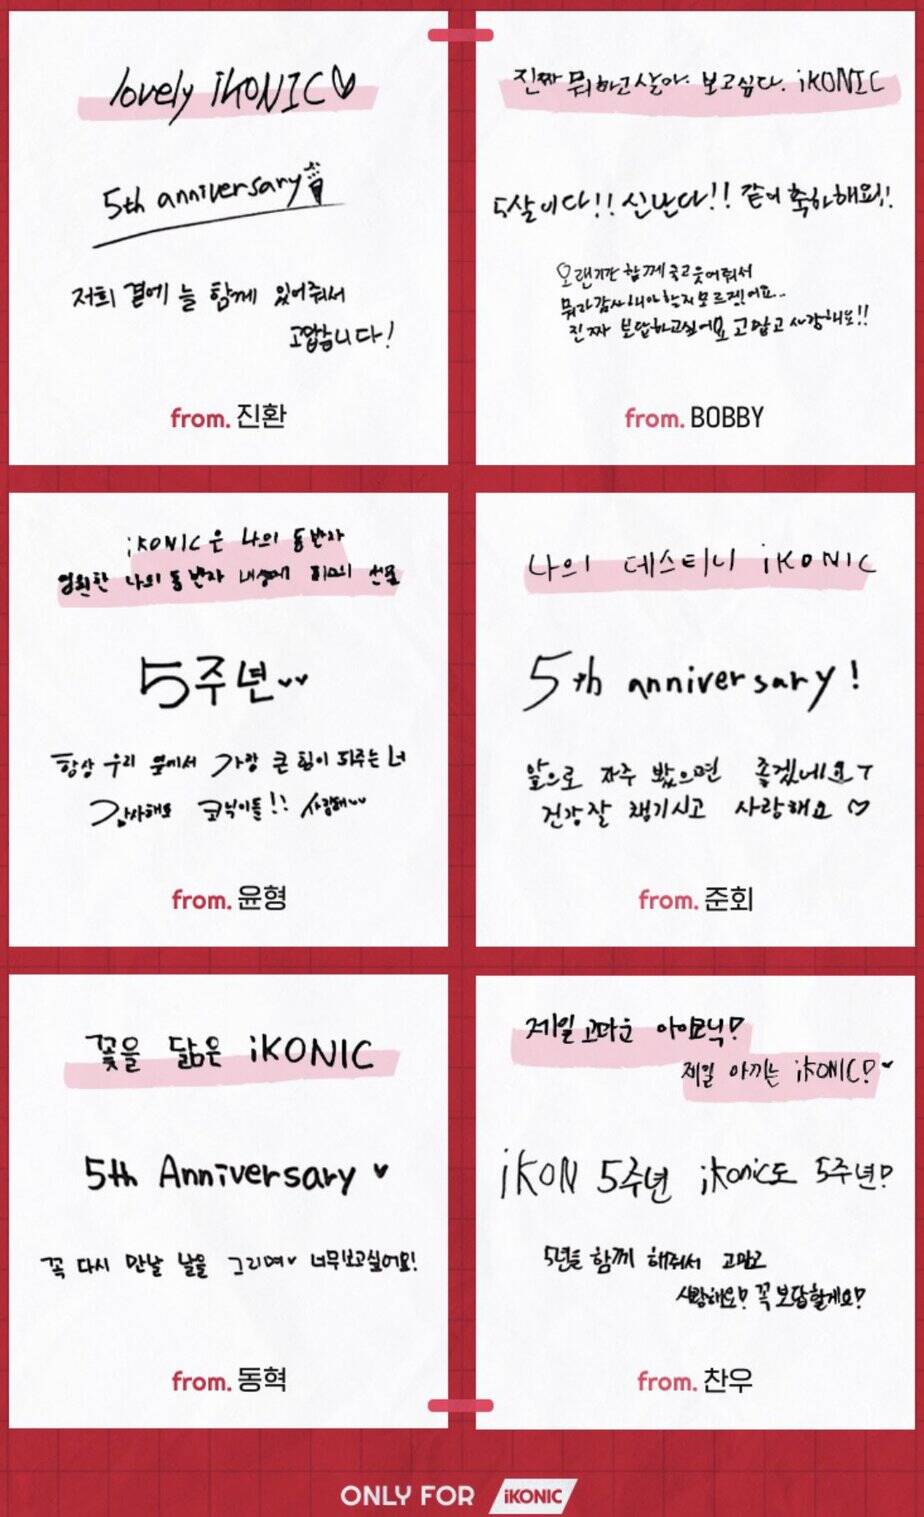 lovely iKONIC♡
5th anniversary
저희 곁에 늘 함께 있어줘서
고맙습니다!
from. 진환
진짜 뭐하고살아. 보고싶다. iKONIC
5살이다!! 신난다!! 같이 축하해요!!
오랜기간 함께 울고웃어줘서
뭐라감사해야할지모르겠어요..
진짜 보답하고싶어요 고맙고 사랑해요!!
from. BOBBY
iKONIC은 나의 동반자
영원한 나의 동반자 내생에 최고의 선물
5주년
항상 우리 옆에서 가장 큰 힘이 되주는 너
감사해요 코닉이들!! 사랑해
from. 윤형
나의 데스티니 iKONIC
5th anniversary!
앞으로 자주 봤으면 좋겠네요ㅜ
건강잘 챙기시고 사랑해요 ♡
from. 준회
꽃을 닮은 iKONIC
5th Anniversary ♥
꼭 다시 만날 날을 그리며♥ 너무보고싶어요!
from. 동혁
제일 고마운 아이코닉!
제일 아끼는 iKONIC!♥
iKON 5주년 iKonic도 5주년!
5년을 함께 해줘서 고맙고
사랑해요! 꼭 보답할게요!
from. 찬우
ONLY FOR iKONIC